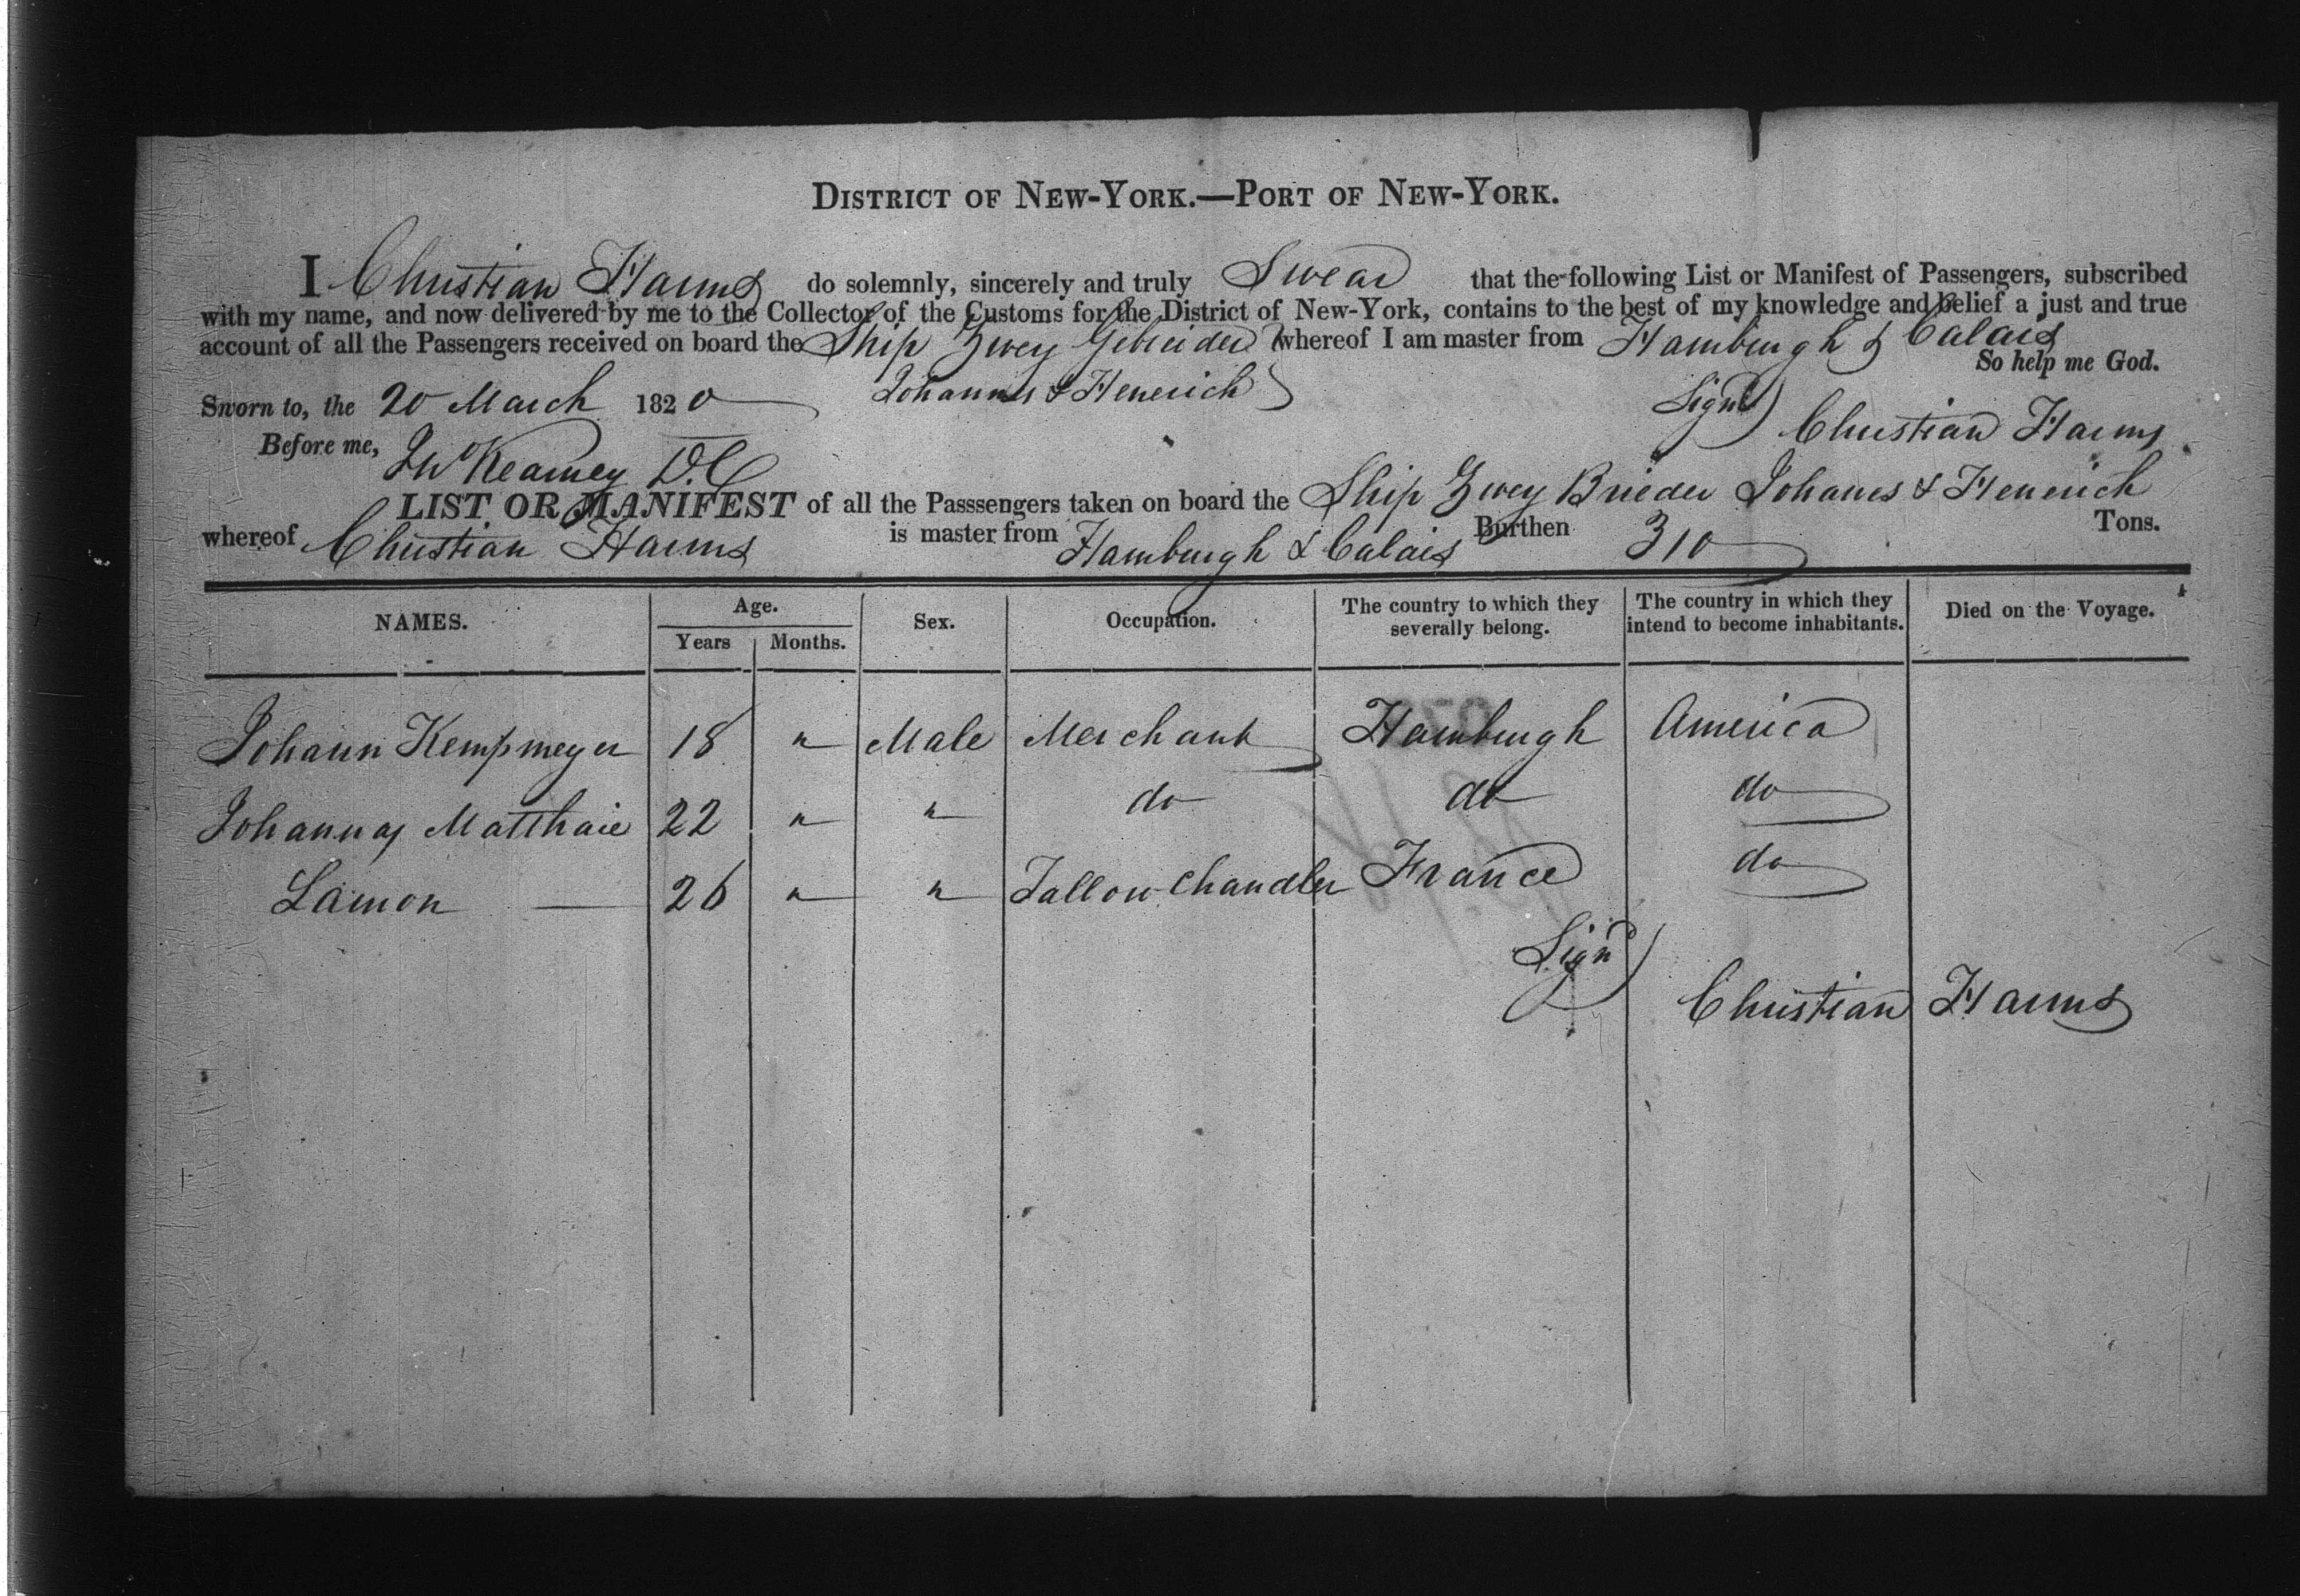 DISTRICT OF NEW-YORK.—PORT OF NEW-YORK.
I Christian Harms do solemnly, sincerely and truly Swear that the following List or Manifest of Passengers, subscribed
with my name, and now delivered by me to the Collector of the Customs for the District of New-York, contains to the best of my knowledge and belief a just and true
account of all the Passengers received on board the Ship Zwey Gebrieder whereof I am master from Hamburgh & Calais
Johannes & Henerich
So help me God.
Sworn to, the 20 March 1820
Signd) Christian Harms
Before me, Kearney D.C
LIST OR MANIFEST of all the Passsengers taken on board the Ship Zwey Brieder Johanes & Henerich
whereof Christian Harms is master from Hamburgh & Calais Burthen 310 Tons.
NAMES. Age. Sex. Occupation. The country to which they severally belong. The country in which they intend to become inhabitants. Died on the Voyage.
Years Months.
Johann Kempmeyer 18 " Male Merchant Hamburgh America
Johannes Matthaie 22 " " do do do
Lamon — 26 " " Tallow Chandler France do
Signd)
Christian Harms